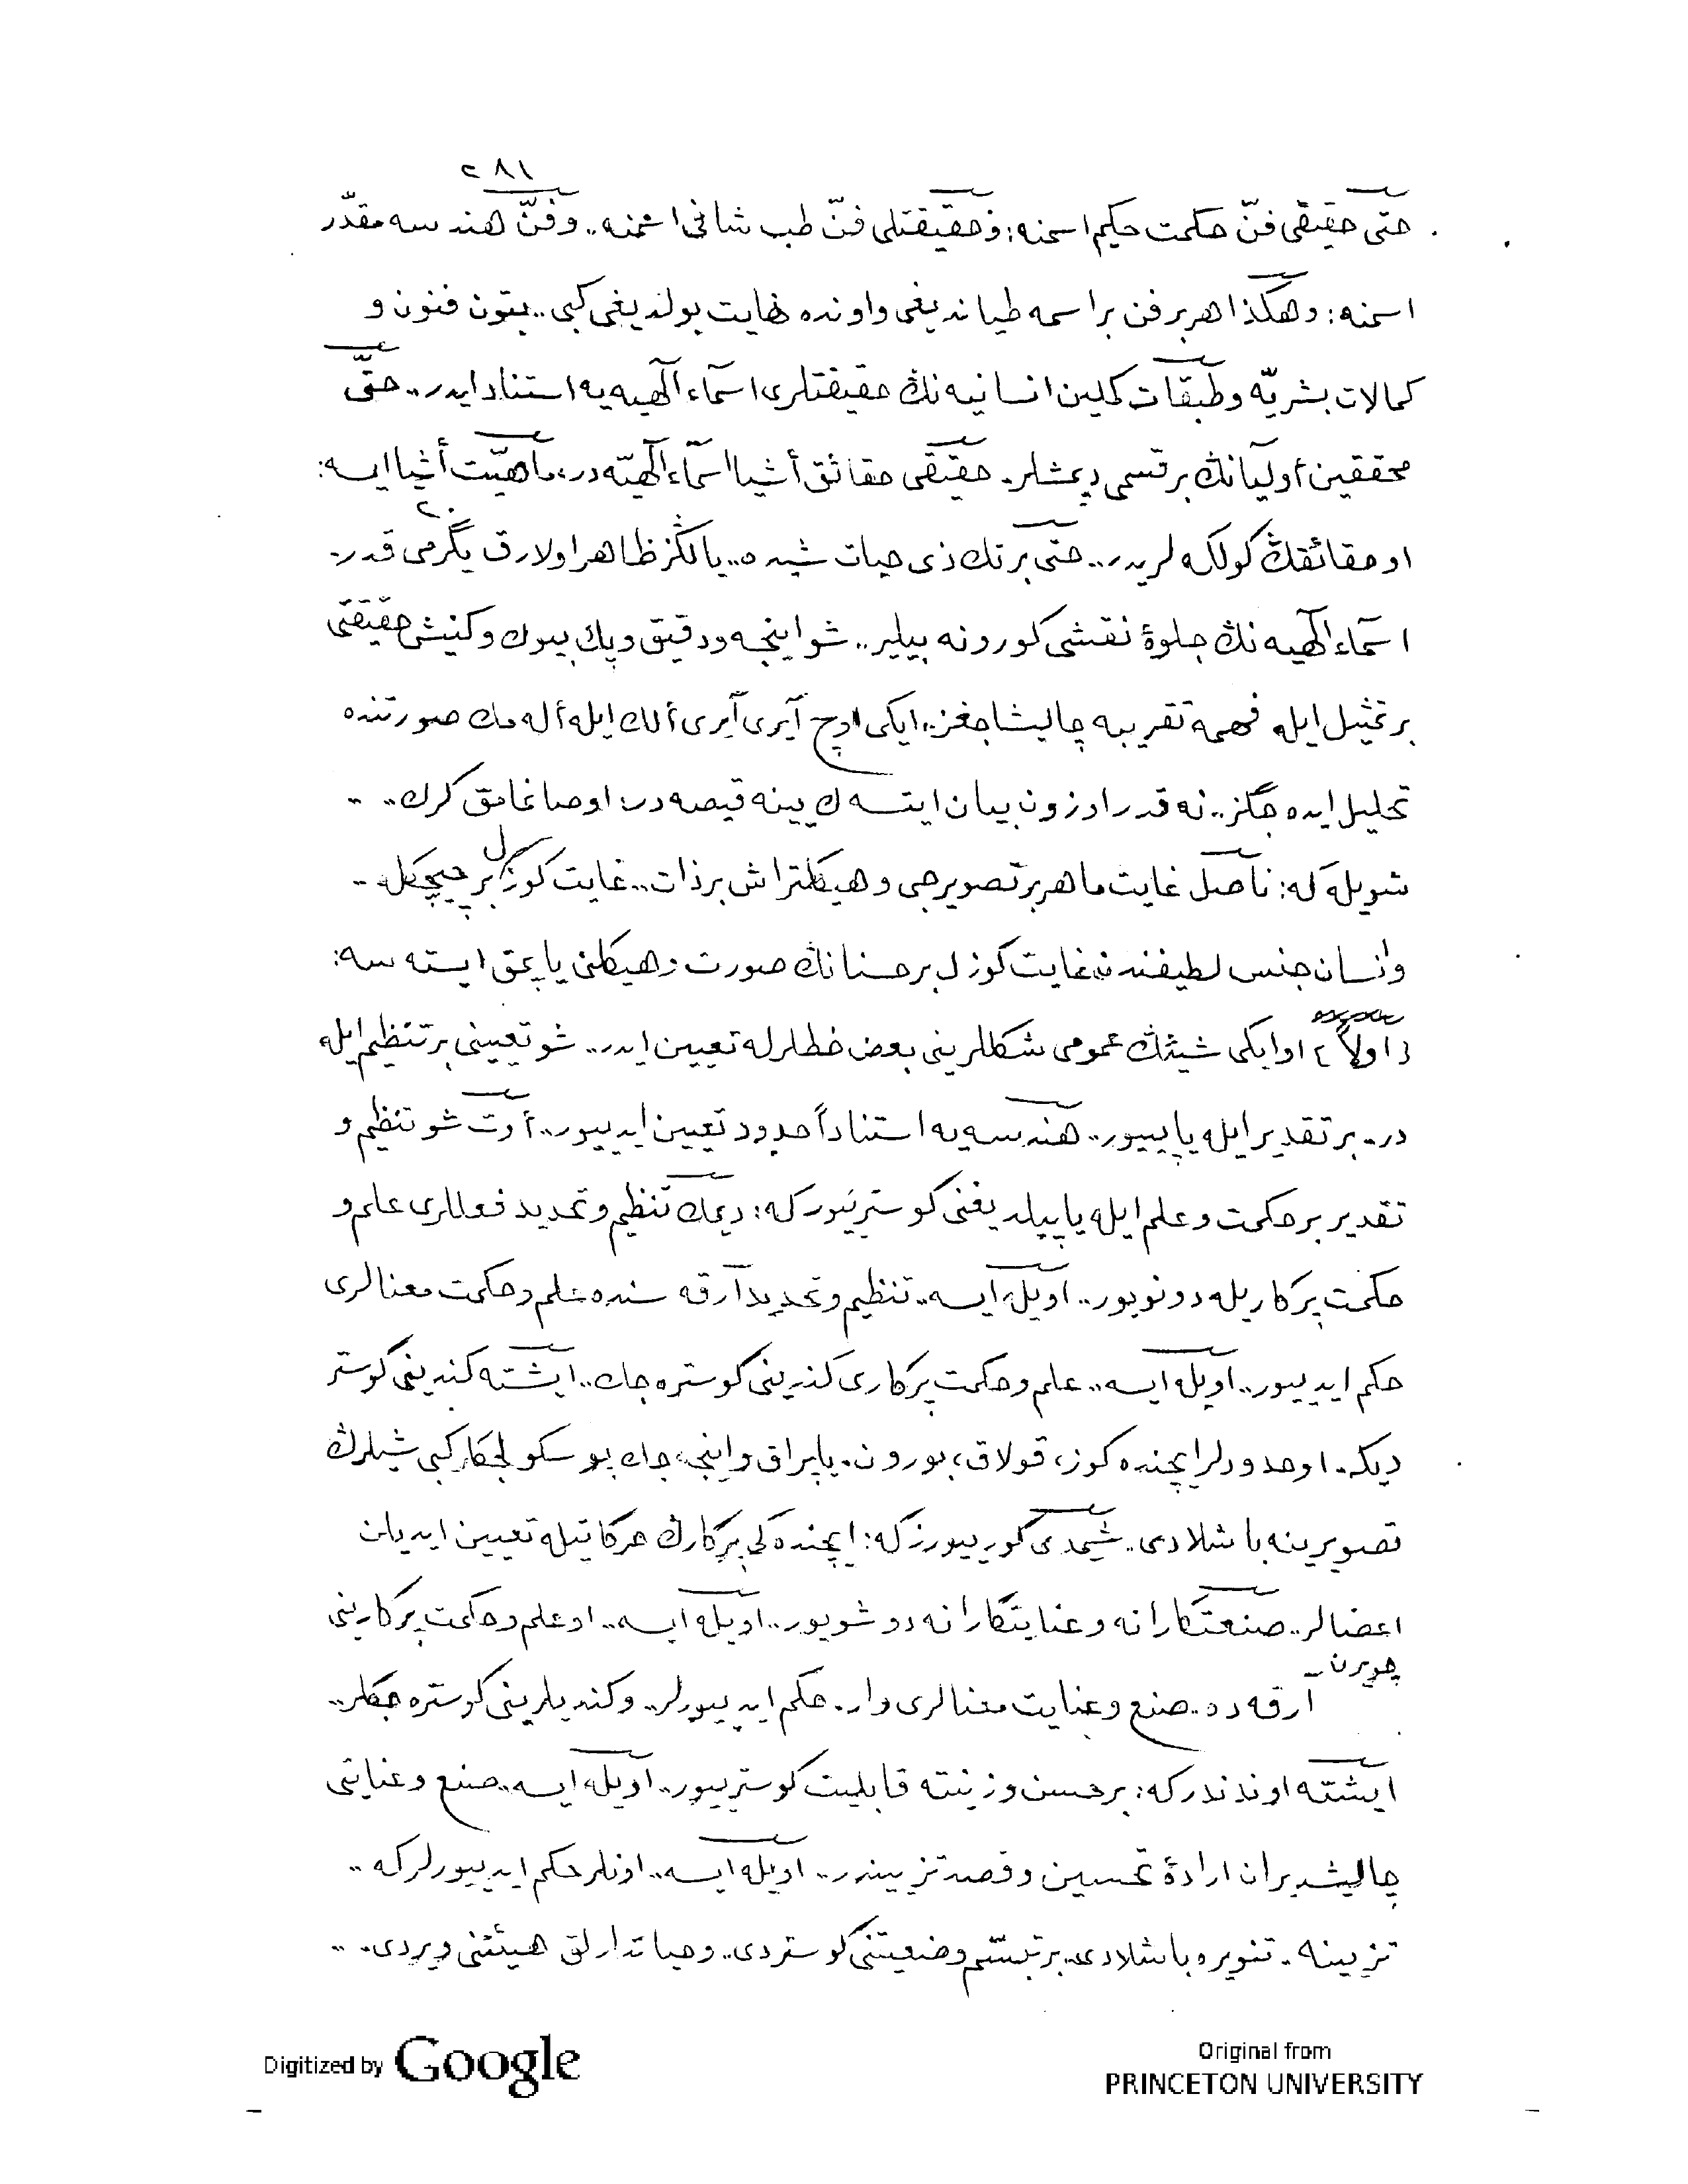 ٢٨١
حتى حقيقى فنّ حكمت حكيم اسمنه؛ و حقيقتلى فنّ طب شافى اسمنه.. و فنّ هندسه مقدّر
اسمنه: و هكذا هر بر فن بر اسمه طياند يغى و اونده نهايت بولديغى كبى.. بتون فنون و
كمالات بشريّه و طبقات كملين انسانيه نڭ حقيقتلرى اسمآء الٓهيه يه استناد ايدر.. حتّى
محققين أوليانڭ بر قسمى ديمشلر. حقيقى حقائق أشيا اسمآء الٓهيّه در، ماهيّت أشيا ايسه:
او حقائقڭ كولكه لريدر.. حتى بر تك ذى حيات شيده.. يالڭز ظاهر اولارق يگرمى ٢٠ قدر.
اسمآء الٓهيه نڭ جلوۀ نقشى كورونه بيلير.. شو اينجه و دقيق و پك بيوك و كنيش حقيقتى
بر تمثيل ايله فهمه تقريبه چاليشاجغز.. ايكى اوچ آيرى آيرى ألك ايله أله مك صورتنده
تحليل ايده جگز.. نه قدر اوزون بيان ايتسه ك يينه قيصه در، اوصانمامق كرك..
شويله كه: ناصل غايت ماهر بر تصويرجى و هيكلتراش بر ذات.. غايت كوزل بر چيچكك..
و انسان جنس لطيفندن غايت كوزل بر حسنانڭ صورت و هيكلنى ياپمق ايسته سه:
﴿اولاً﴾ او ايكى شيئڭ عمومى شكللرينى بعض خطلرله تعيين ايدر.. شو تعيينى بر تنظيم ايله
در. بر تقدير ايله ياپييور.. هندسه يه استناداً حدود تعيين ايدييور.. أوت شو تنظيم و
تقدير بر حكمت و علم ايله ياپيلديغنى كوستريیور كه: ديمك تنظيم و تحديد فعللرى علم و
حكمت پركاريله دونويور.. اويله ايسه.. تنظيم و تحديد آرقه سنده علم و حكمت معنالرى
حكم ايدييور.. اويله ايسه.. علم و حكمت پركارى كندينى كوستره جك.. ايشته كندينى كوستر
ديكه. او حدودلر ايچنده كوز، قولاق، بورون. ياپراق و اينجه جك پوسكوللجكلر كبى شيلرڭ
تصويرينه باشلادى.. شيمدى كورييورز كه: ايچنده كى پركارڭ حركاتيله تعيين ايديلن
اعضالر.. صنعتكارانه و عنايتكارانه دوشويور.. اويله ايسه.. او علم و حكمت پركارينى
چويرن آرقه ده. صنع و عنايت معنالرى وار. حكم ايدييورلر.. و كنديلرينى كوستره جكلر..
ايشته اونداندر كه: بر حسن و زينته قابليت كوسترييور.. اويله ايسه.. صنع و عنايتى
چاليشديران ارادۀ تحسين و قصد تزييندر.. اويله ايسه.. اونلر حكم ايدييورلر كه..
تزيينه. تنويره باشلادى. بر تبسّم وضعيتنى كوستردى.. و حياتدارلق هيئتنى ويردى..
Digitized by Google
Original from
PRINCETON UNIVERSITY